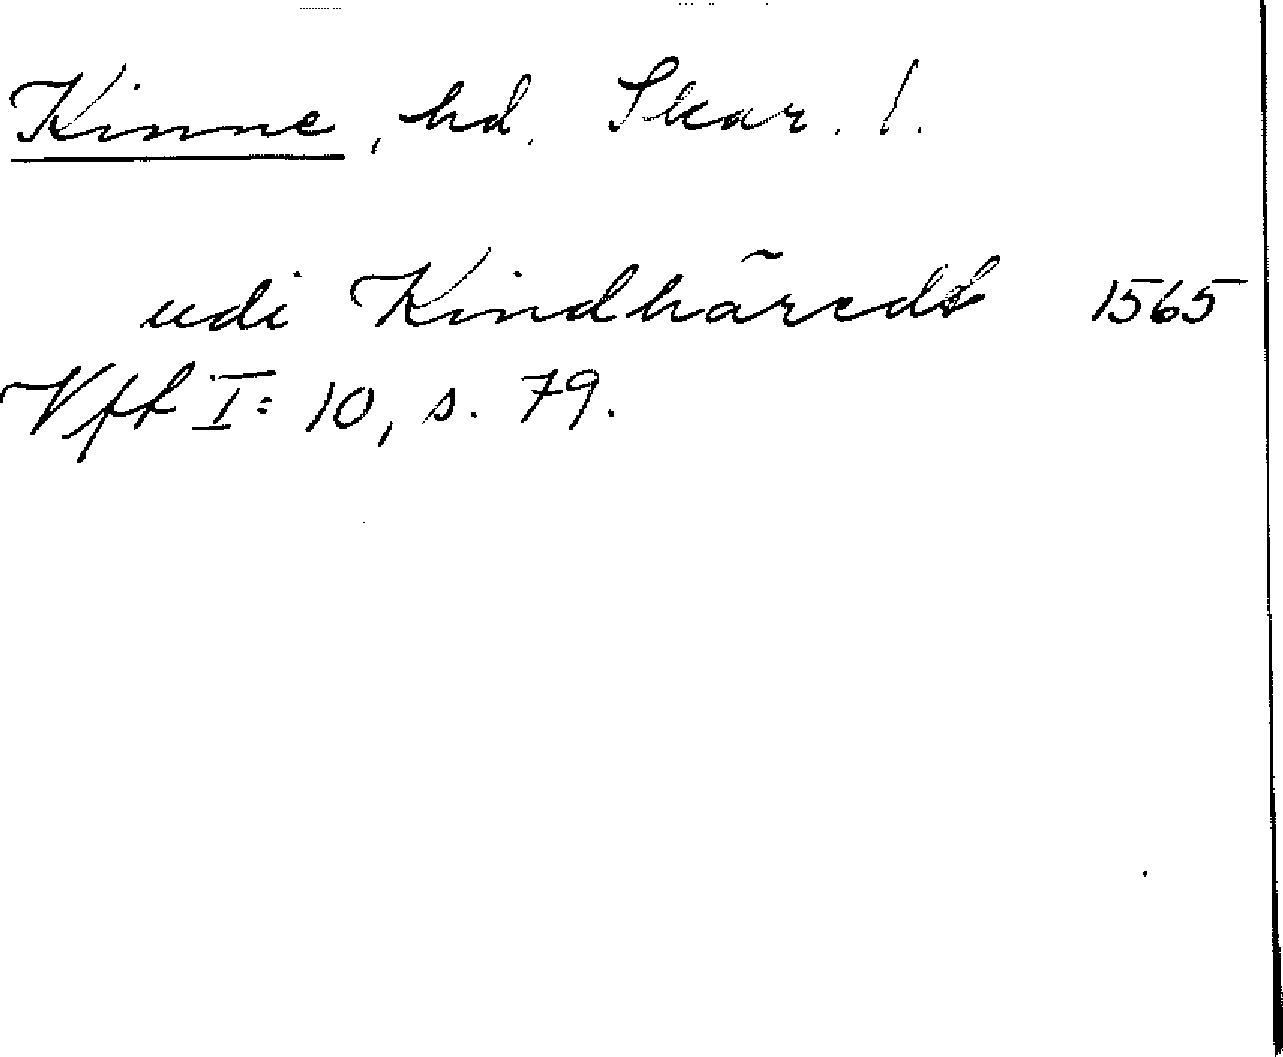 Kinne, hd. Skar. l.
udi Kindhãredt 1565
Vff I: 10, s. 79.